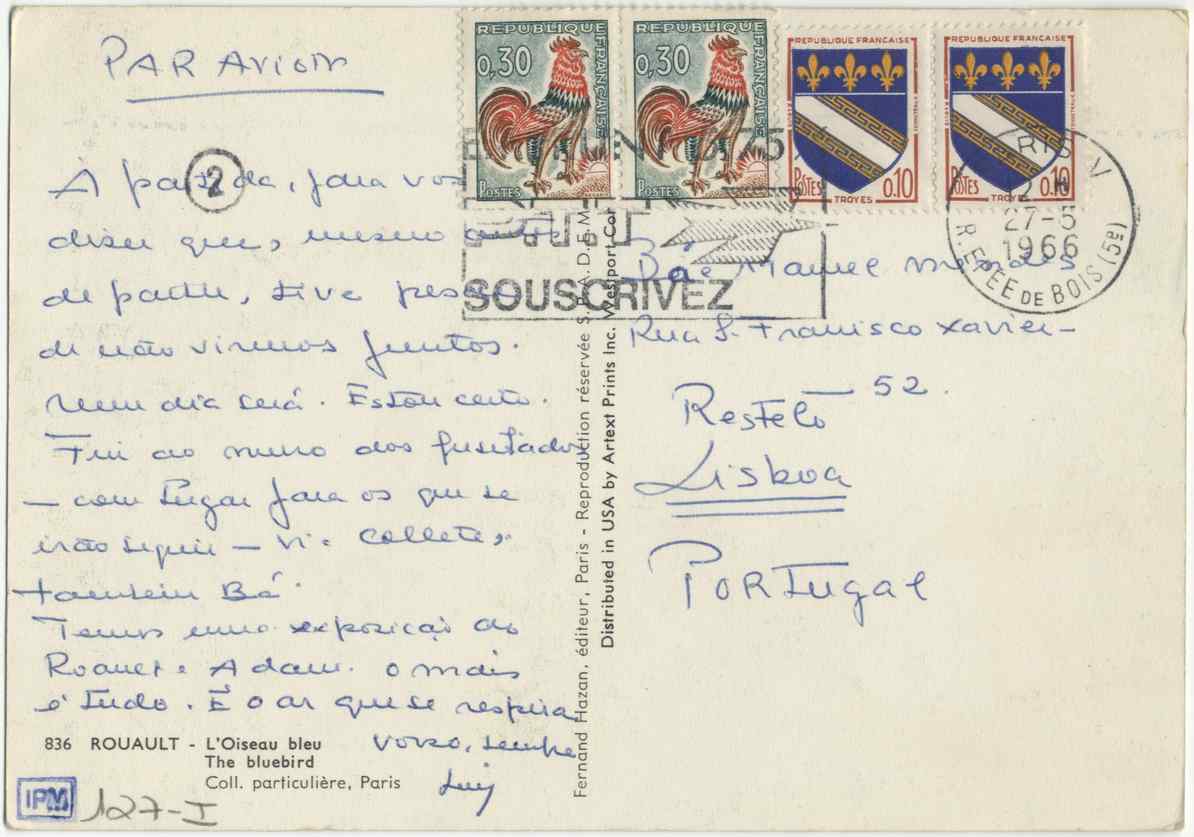 PAR Avion
2
À partida, para vos
dizer que, mesmo antes
de partir, tive pesar
de não virmos juntos.
Num dia será. Estou certo.
Fui ao muro dos fusilados
— com lugar para os que se
irão seguir — vi o Collete,
também Bá.
Temos uma exposição do
Rouault e Adam. o mais
é tudo. É o ar que se respira
vosso, sempre
Luiz
836 ROUAULT - L'Oiseau bleu
The bluebird
Coll. particulière, Paris
IPM
127-I
Fernand Hazan, éditeur, Paris - Reproduction réservée S.P.A.D.E.M.
Distributed in USA by Artext Prints Inc. Westport Con
REPUBLIQUE FRANÇAISE
0,30
POSTES
REPUBLIQUE FRANÇAISE
0,30
POSTES
REPUBLIQUE FRANÇAISE
POSTES
0.10
TROYES
REPUBLIQUE FRANÇAISE
POSTES
0.10
TROYES
SOUSCRIVEZ
27-5
1966
R. EPEE DE BOIS (5e)
Manuel Mendes
Rua S. Francisco Xavier —
— 52.
Restelo
Lisboa
PORTugal